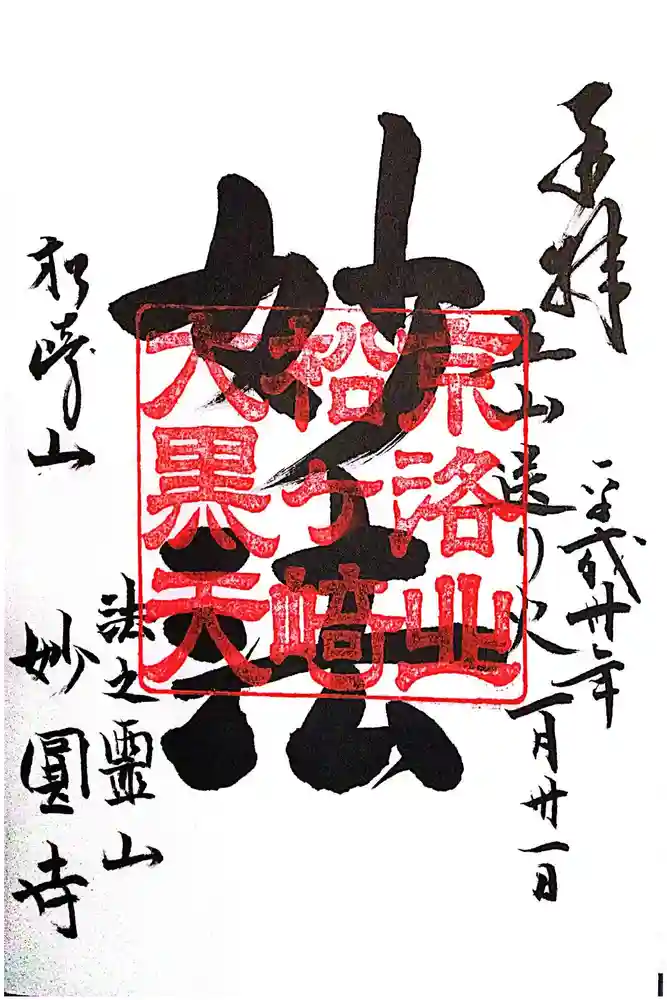 奉拝
平成廿年
五山送り火
一月廿一日
妙法
京洛北
松ヶ崎
大黒天
法之霊山
松崎山
妙圓寺